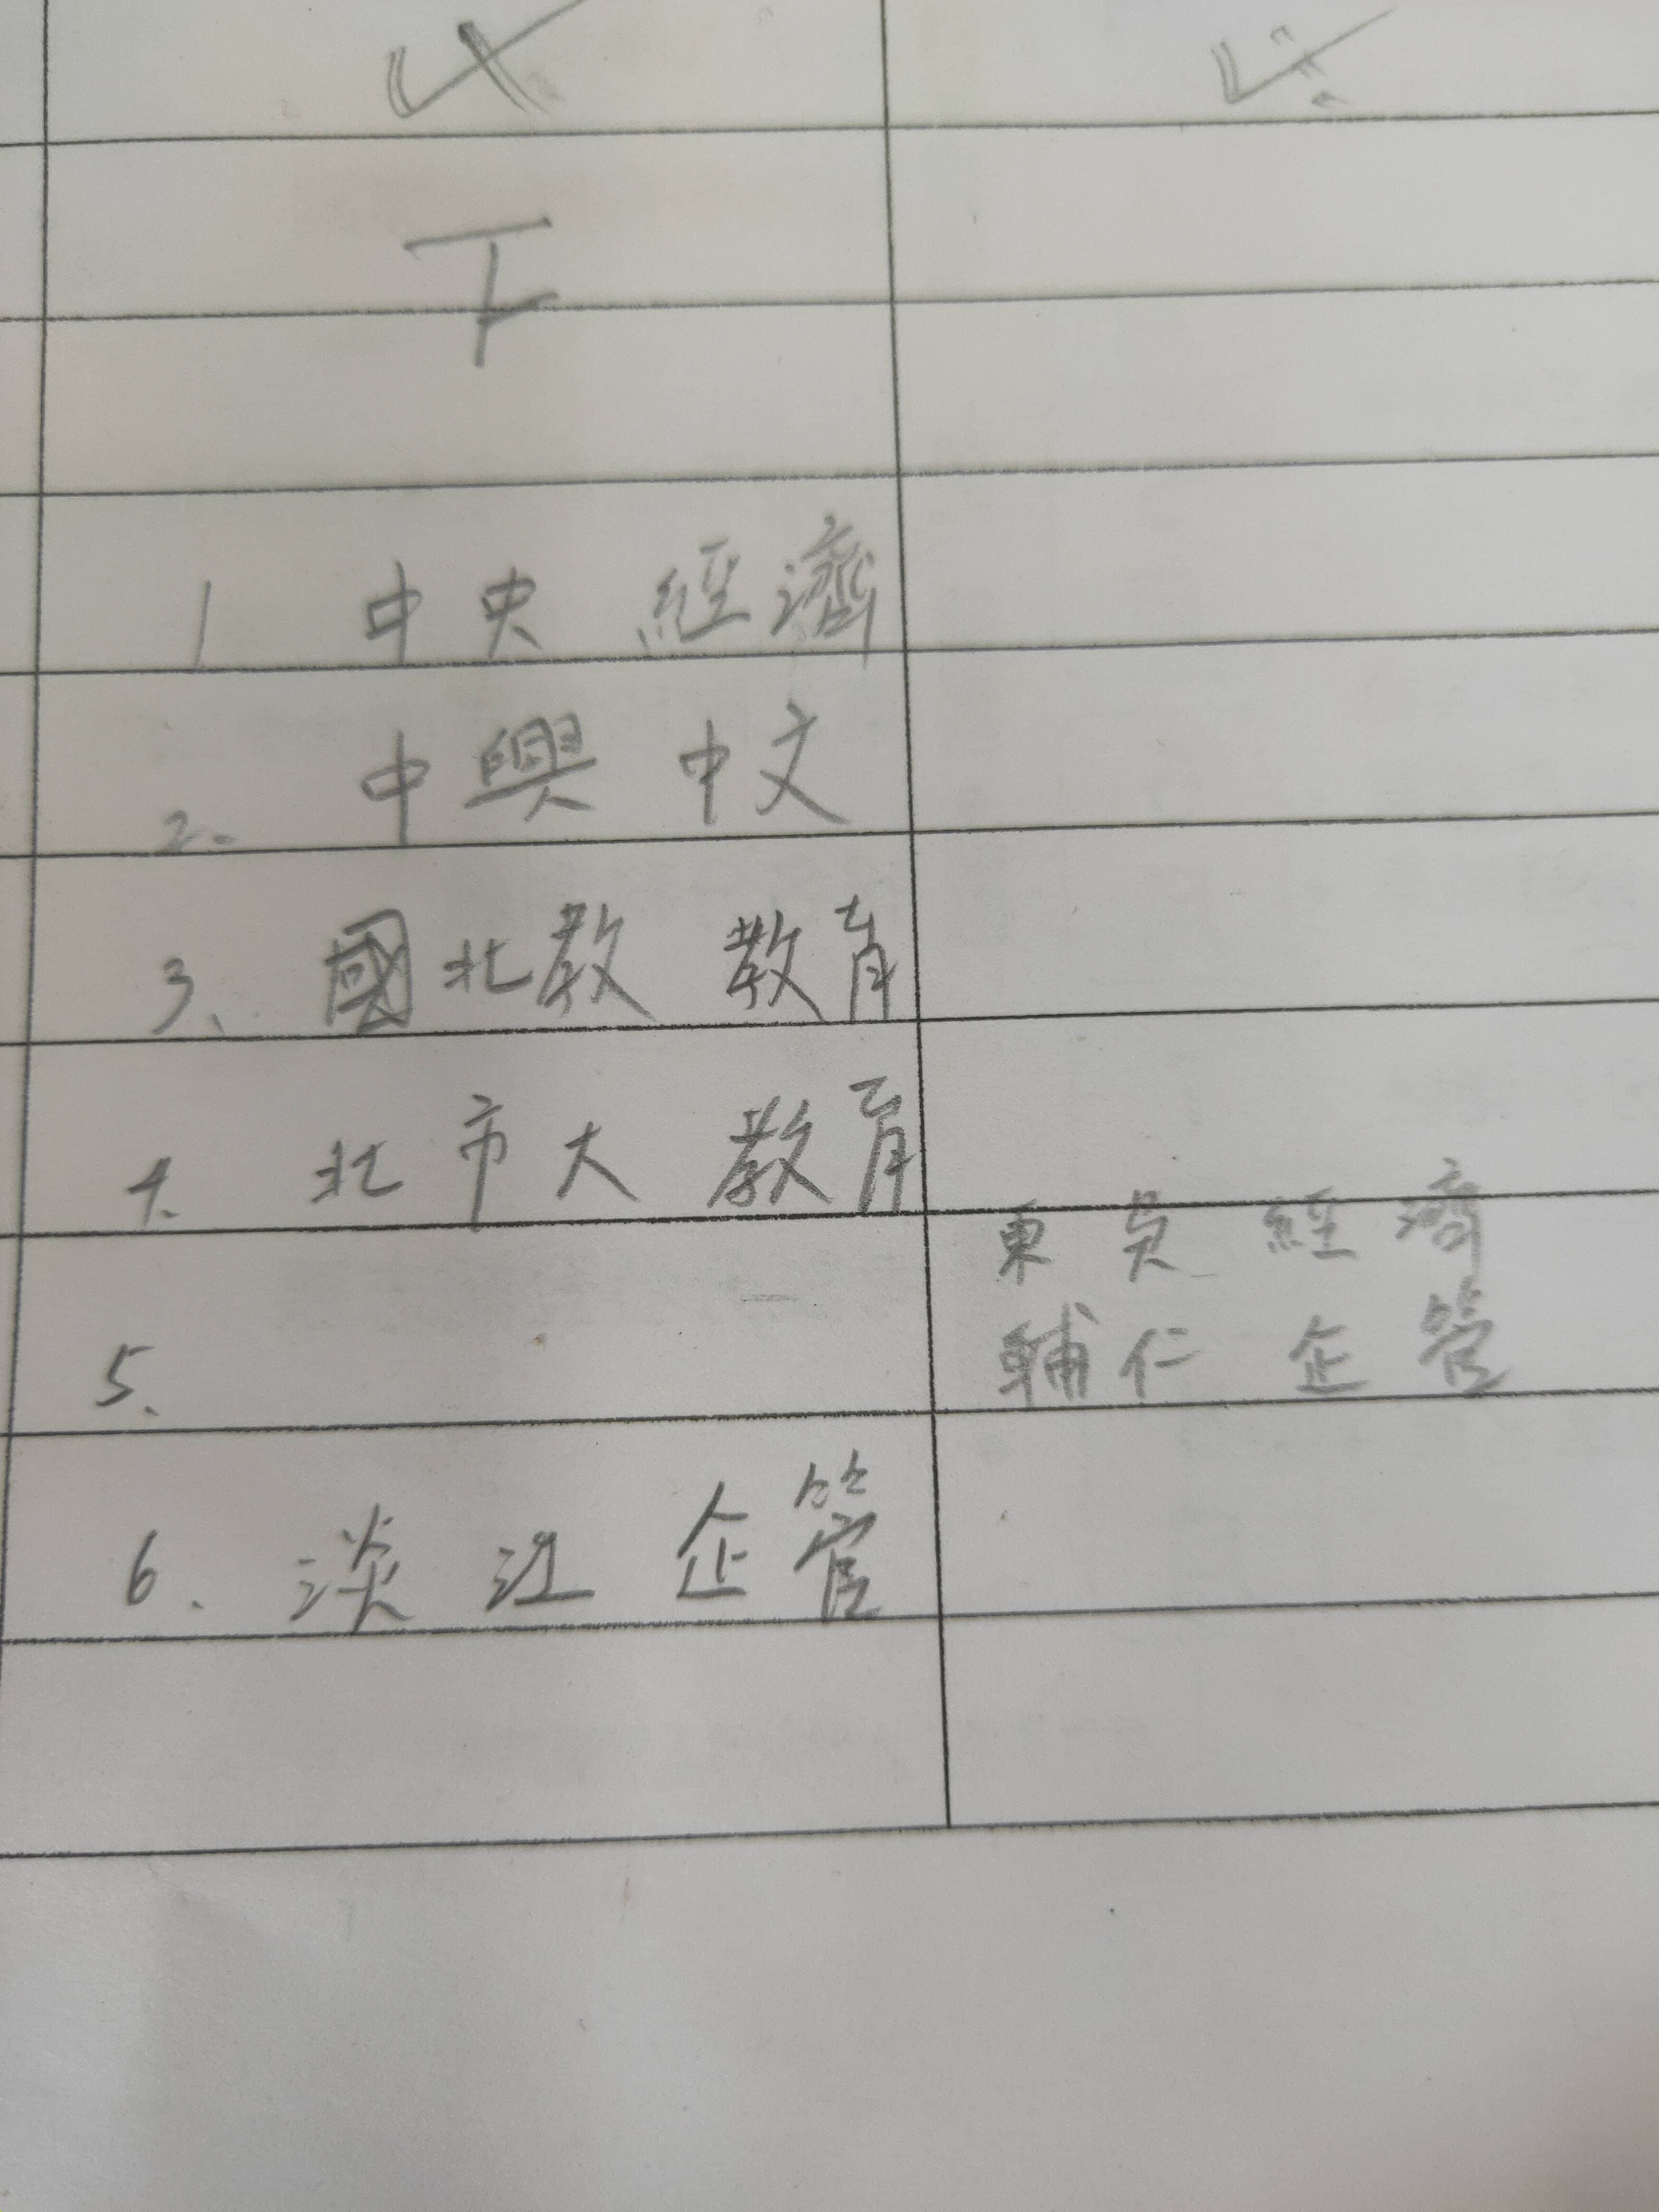 1 中央 經濟
2. 中興 中文
3、 國北教 教育
4. 北市大 教育
東吳 經濟
5. 輔仁 企管
6. 淡江 企管